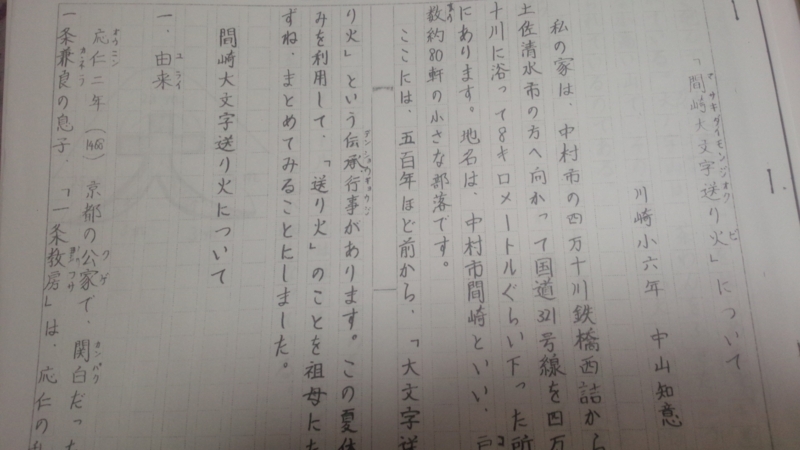 「間崎大文字送り火」について
マサキダイモンジオクビ
川崎小六年　中山知意
私の家は、中村市の四万十川鉄橋西詰から
土佐清水市の方へ向かって国道321号線を四万
十川に沿って8キロメートルぐらい下った所
にあります。地名は、中村市間崎といい、戸
数約80軒の小さな部落です。
ここには、五百年ほど前から、「大文字送
り火」という伝承行事があります。この夏休
みを利用して、「送り火」のことを祖母にた
ずね、まとめてみることにしました。
間崎大文字送り火について
一、由来
ユライ
応仁二年（1468）京都の公家で、関白だった
オウニン
クゲ
カンパク
一条兼良の息子、「一条教房」は、応仁の